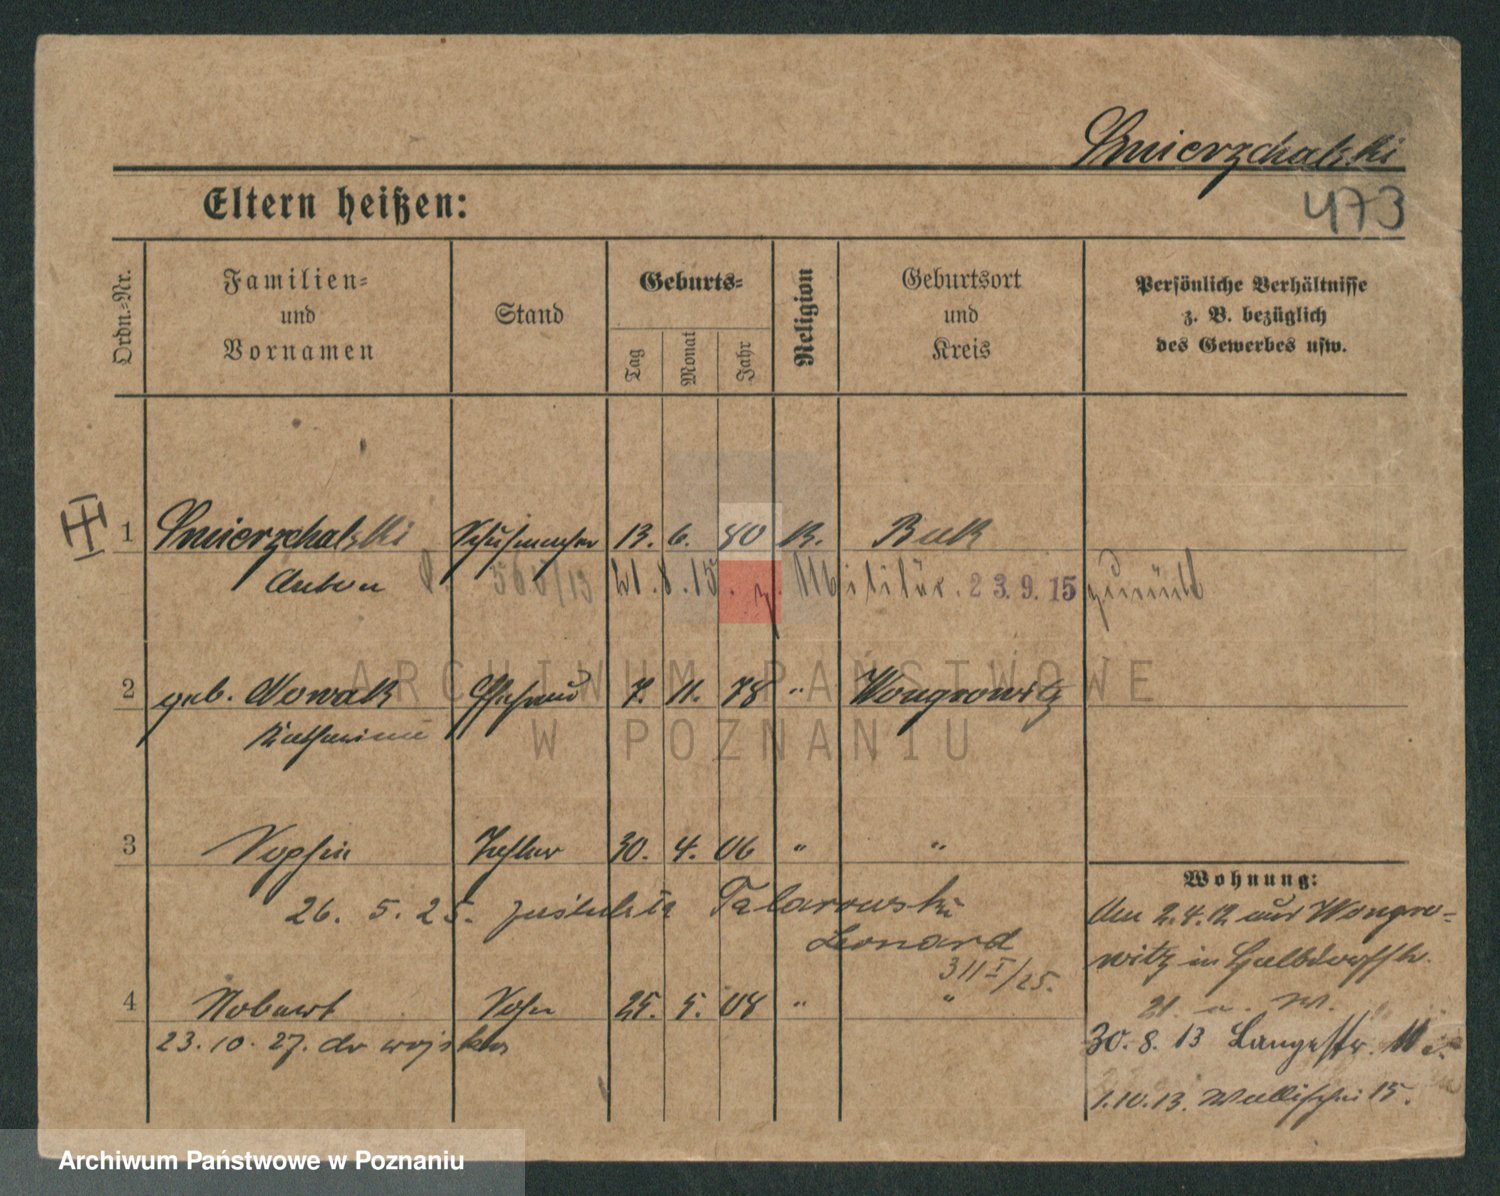 Smierzchalski
473
Eltern heißen:
Ordn.-Nr.
Familien-
und
Vornamen
Stand
Geburts-
Tag
Monat
Jahr
Religion
Geburtsort
und
Kreis
Persönliche Verhältnisse
z. B. bezüglich
des Gewerbes usw.
1 Smierzchalski Schuhmacher 13. 6. 80 K. Buk
Anton 21.8.15. z. Militär. 23.9.15 zurück
2 geb. Nowak Ehefrau 7. 11. 78 " Wongrowitz
Katharina
3 Sophie Tochter 30. 4. 06 " "
26. 5. 25. Talarowski
Leonard
311 I/25.
4 Robert Sohn 25. 5. 08 " "
23. 10. 27. do wojska
Wohnung:
Am 2.4.12 aus Wongro-
witz in Halbdorfstr.
21
30. 8. 13 Langestr. 11
1.10.13. Wallischei 15.
ARCHIWUM PAŃSTWOWE
W POZNANIU
Archiwum Państwowe w Poznaniu